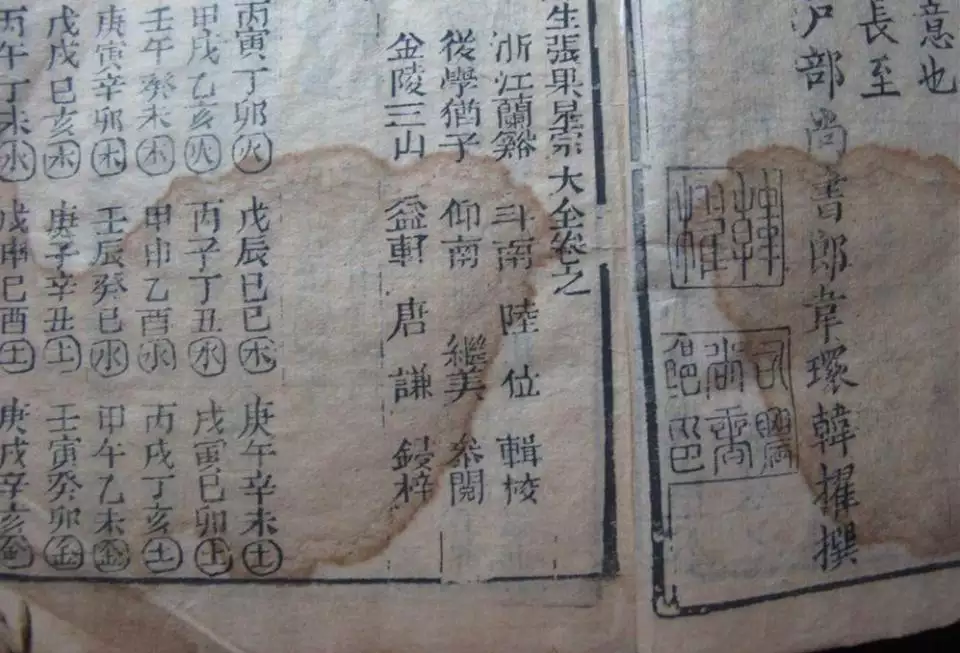 意也
長至
戶部尚書郎韋環韓擢撰
韓擢
生張果星宗大全卷之
浙江蘭谿 斗南 陸位 輯校
後學猶子 仰南 繼美 叅閱
金陵三山 益軒 唐謙 鋟梓
丙寅丁卯火 戊辰巳巳木 庚午辛未土
甲戌乙亥火 丙子丁丑水 戊寅巳卯土
壬午癸未木 甲申乙酉水 丙戌丁亥土
庚寅辛卯木 壬辰癸巳水 甲午乙未金
戊戌巳亥木 庚子辛丑土 壬寅癸卯金
丙午丁未水 戊申巳酉土 庚戌辛亥金